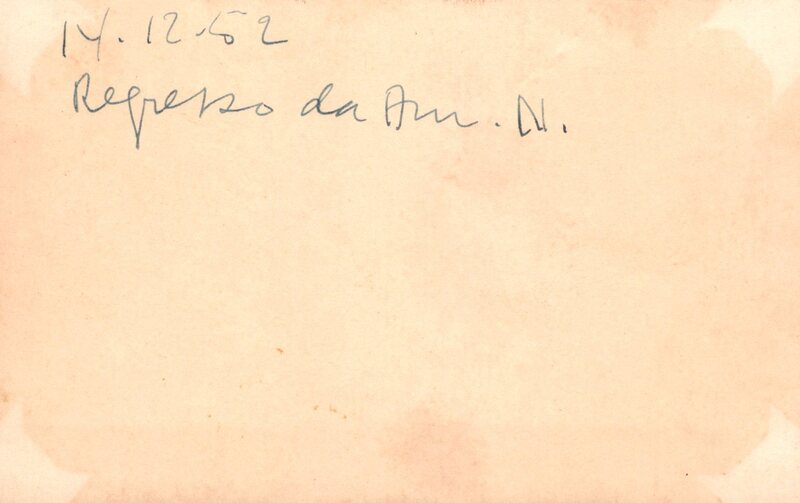 14.12.52
Regresso da Am. N.